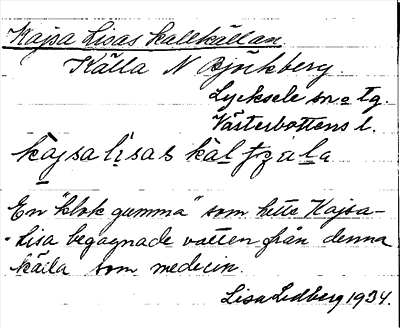 Kajsa Lisas kallkällan
Källa N Björkberg
Lycksele sn o tg.
Västerbottens l.
kajsalisas kalfzäla
En "klok gumma" som hette Kajsa-
-Lisa begagnade vatten från denna
källa som medecin.
Lisa Lidberg 1934.